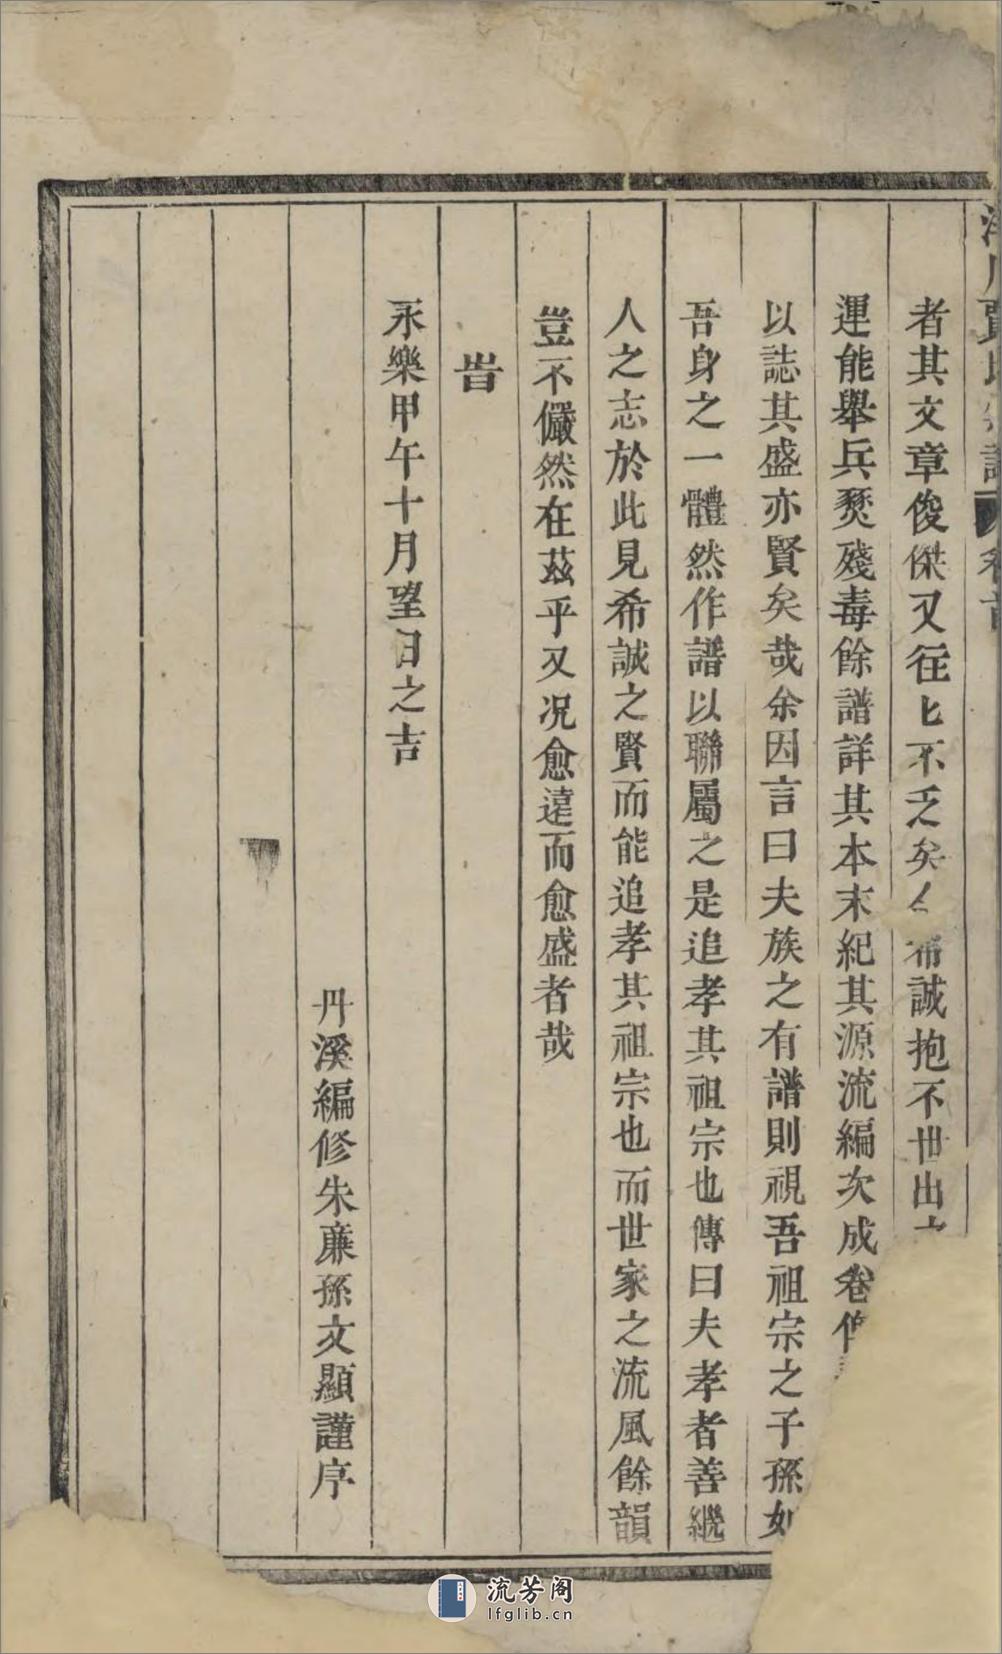 賈氏宗譜 卷首
者其文章俊傑又往匕不乏矣 希誠抱不世出
運能舉兵燹殘毒餘譜詳其本末紀其源流編次成卷
以誌其盛亦賢矣哉余因言曰夫族之有譜則視吾祖宗之子孫如
吾身之一體然作譜以聯屬之是追孝其祖宗也傳曰夫孝者善繼
人之志於此見希誠之賢而能追孝其祖宗也而世家之流風餘韻
豈不儼然在茲乎又况愈遠而愈盛者哉
旹
永樂甲午十月望日之吉
丹溪編修朱廉孫文顯謹序
流芳阁
lfglib.cn